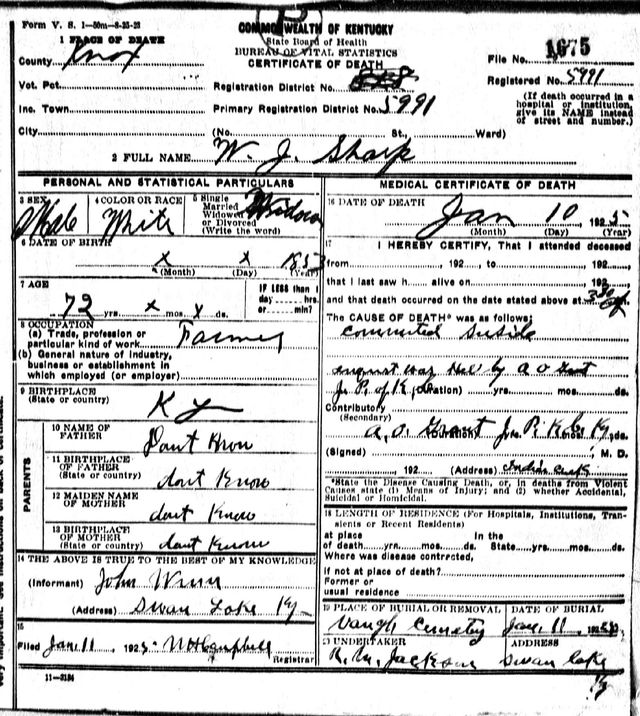 Form V. S. 1—50m—8-25-23
COMMONWEALTH OF KENTUCKY
State Board of Health
BUREAU OF VITAL STATISTICS
CERTIFICATE OF DEATH
1 PLACE OF DEATH
County Knox
File No. 1675
Vot. Pct
Registration District No.
Registered No. 5991
Inc. Town
Primary Registration District No. 5991
(If death occurred in a hospital or institution, give its NAME instead of street and number.)
City (No. St., Ward)
2 FULL NAME W. J. Sharp
PERSONAL AND STATISTICAL PARTICULARS
3 SEX Male
4 COLOR OR RACE White
5 Single Married Widowed or Divorced (Write the word) Widow
6 DATE OF BIRTH
x x 1853
(Month) (Day) (Year)
7 AGE
72 yrs. x mos. x ds.
IF LESS than 1 day hrs. or min?
8 OCCUPATION
(a) Trade, profession or particular kind of work Farmer
(b) General nature of industry, business or establishment in which employed (or employer)
9 BIRTHPLACE
(State or country) Ky
PARENTS
10 NAME OF FATHER Dont Know
11 BIRTHPLACE OF FATHER (State or country) dont Know
12 MAIDEN NAME OF MOTHER dont Know
13 BIRTHPLACE OF MOTHER (State or country) dont Know
14 THE ABOVE IS TRUE TO THE BEST OF MY KNOWLEDGE
(Informant) John Winn
(Address) Swan Lake Ky
15
Filed Jan. 11, 1925 W H Campbell
Registrar
11—3184
MEDICAL CERTIFICATE OF DEATH
16 DATE OF DEATH
Jan 10 1925
(Month) (Day) (Year)
17 I HEREBY CERTIFY, That I attended deceased
from , 192 , to , 192 ,
that I last saw h alive on , 192
and that death occurred on the date stated above at
The CAUSE OF DEATH* was as follows:
committed Suside
was Hel by A O Grant
J. P. of K. (Duration) yrs. mos. ds.
Contributory
(Secondary)
A. O. Grant J. P. K. C. Ky.
(Duration) yrs. mos. ds.
(Signed) M. D.
192 (Address)
*State the Disease Causing Death, or, in deaths from Violent Causes state (1) Means of Injury; and (2) whether Accidental, Suicidal or Homicidal.
18 LENGTH OF RESIDENCE (For Hospitals, Institutions, Transients or Recent Residents)
at place of death yrs. mos. ds. In the State yrs. mos. ds.
Where was disease contrrcted,
if not at place of death?
Former or usual residence
19 PLACE OF BURIAL OR REMOVAL DATE OF BURIAL
Cemetey Jan. 11, 1925
UNDERTAKER ADDRESS
R. M. Jackson Swan Lake
Ky